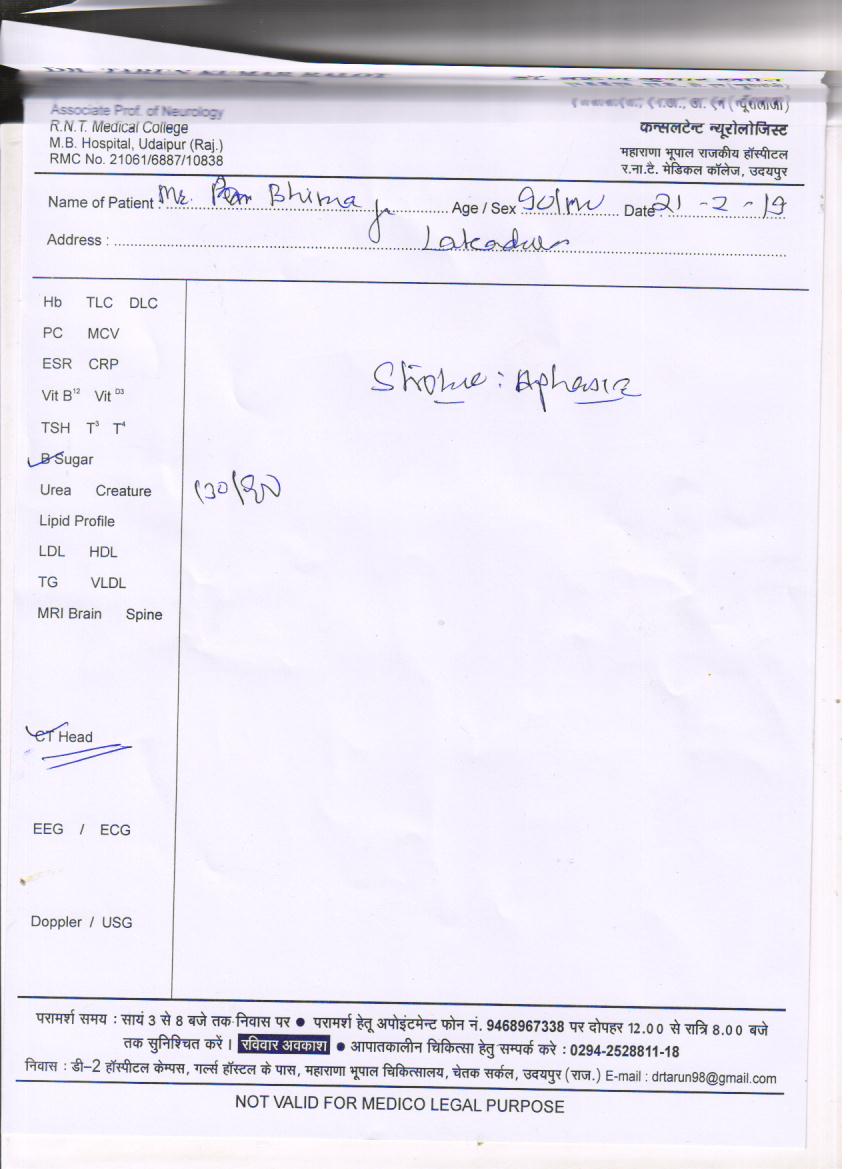 Associate Prof. of Neurology
R.N.T. Medical College
M.B. Hospital, Udaipur (Raj.)
RMC No. 21061/6887/10838
कन्सलटेन्ट न्यूरोलोजिस्ट
महाराणा भूपाल राजकीय हॉस्पीटल
र.ना.टै. मेडिकल कॉलेज, उदयपुर
Name of Patient : Mr. Bhima Age / Sex 90/m Date 21-2-19
Address :
Hb TLC DLC
PC MCV
ESR CRP
Vit B12 Vit D3
Stroke : Aphasia
TSH T3 T4
B Sugar
Urea Creature 130/80
Lipid Profile
LDL HDL
TG VLDL
MRI Brain Spine
CT Head
EEG / ECG
Doppler / USG
परामर्श समय : सायं 3 से 8 बजे तक निवास पर ● परामर्श हेतू अपोइंटमेन्ट फोन नं. 9468967338 पर दोपहर 12.00 से रात्रि 8.00 बजे
तक सुनिश्चित करें । रविवार अवकाश ● आपातकालीन चिकित्सा हेतु सम्पर्क करे : 0294-2528811-18
निवास : डी–2 हॉस्पीटल केम्पस, गर्ल्स हॉस्टल के पास, महाराणा भूपाल चिकित्सालय, चेतक सर्कल, उदयपुर (राज.) E-mail : drtarun98@gmail.com
NOT VALID FOR MEDICO LEGAL PURPOSE